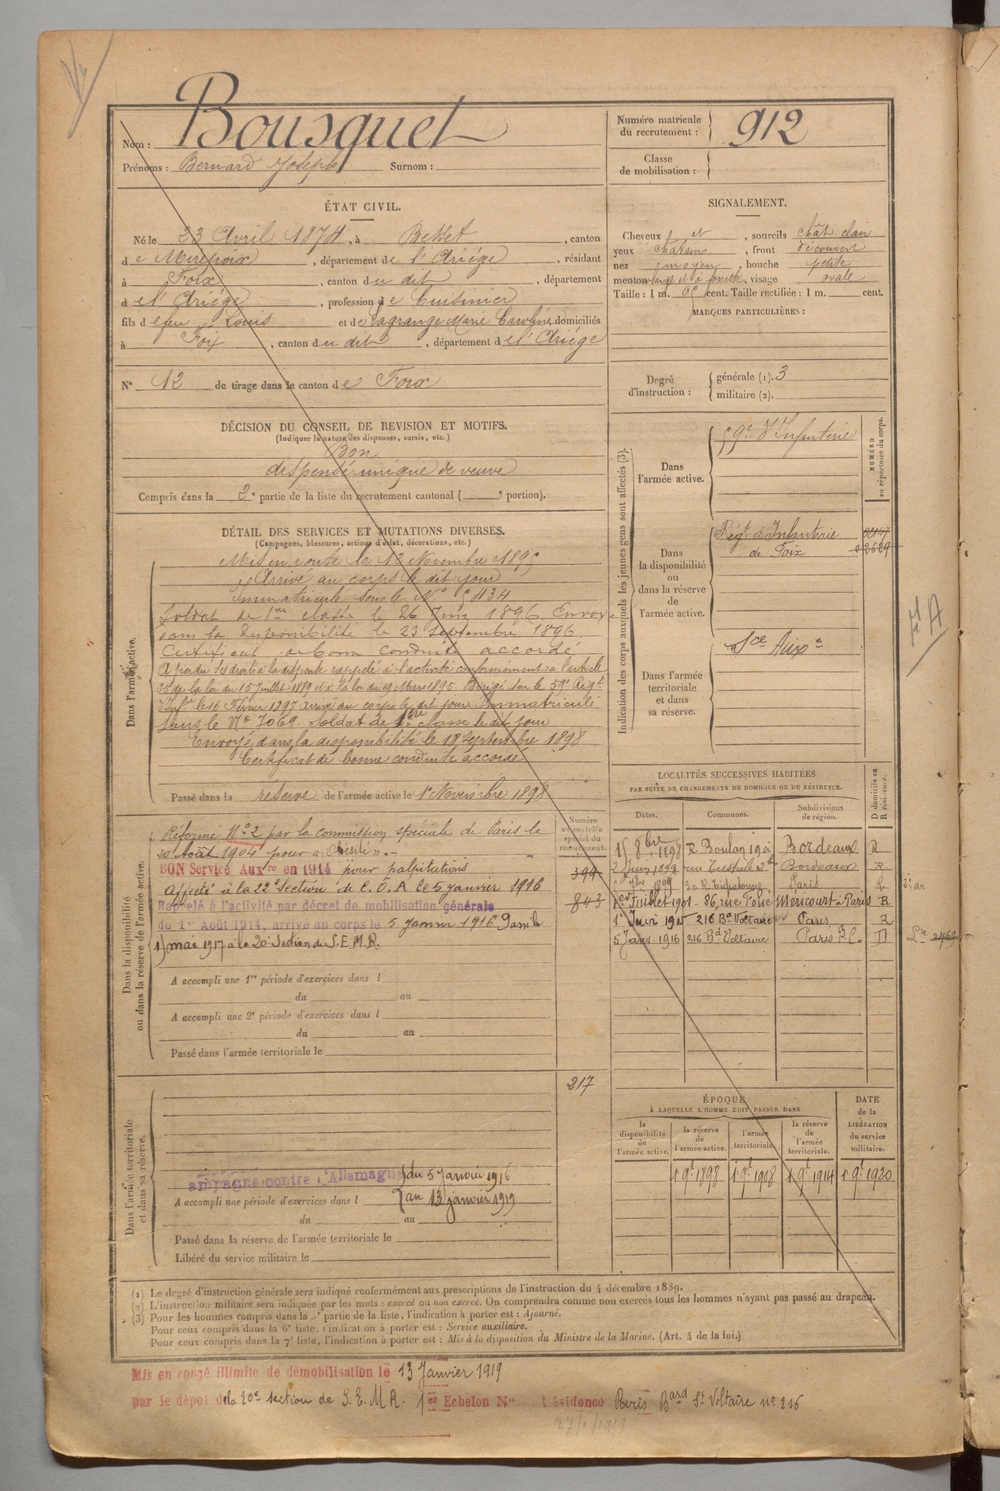 Nom : Bousquet
Prénoms : Bernard Joseph Surnom :
Numéro matricule du recrutement : 912
Classe de mobilisation :
ÉTAT CIVIL.
Né le 23 Avril 1874, à , canton
de Mirepoix, département de l'Ariége, résidant
à Foix, canton du dit, département
de l'Ariége, profession de Cuisinier
fils de feu Louis et de Lagrange Marie Caroline, domiciliés
à Foix, canton du dit, département de l'Ariége
N° 12 de tirage dans le canton de Foix
DÉCISION DU CONSEIL DE REVISION ET MOTIFS.
(Indiquer la nature des dispenses, sursis, etc.)
Bon
dispensé unique de veuve
Compris dans la 2e partie de la liste du recrutement cantonal ( e portion).
DÉTAIL DES SERVICES ET MUTATIONS DIVERSES.
(Campagnes, blessures, actions d'éclat, décorations, etc.)
Dans l'armée active.
Mis en route le 12 Novembre 1895
Arrivé au corps le dit jour
Immatriculé sous le N° 6434
Soldat de 1re classe le 26 Juin 1896 Envoyé
dans la disponibilité le 23 Septembre 1896
Certificat de bonne conduite accordé
A perdu ses droits à la dispense rappelé à l'activité conformément à l'article
35 de la loi du 15 Juillet 1889 et à la loi du 19 Mars 1895. Dirigé sur le 59e Régt
d'Infrie le 16 Février 1897 arrivé au corps le dit jour Immatriculé
sous le N° 7069. Soldat de 1ère classe le dit jour
Envoyé dans la disponibilité le 18 Septembre 1898
Certificat de bonne conduite accordé
Passé dans la réserve de l'armée active le 1er Novembre 1898
Dans la disponibilité ou dans la réserve de l'armée active.
Réforme N° 2 par la commission spéciale de Paris le
20 Août 1904 pour « Obésité ».
BON Service Auxre en 1914 pour palpitations
Affecté à la 22e Section de C.O.A le 5 janvier 1916
Rappelé à l'activité par décret de mobilisation générale
du 1er Août 1914, arrivé au corps le 5 Janvier 1916
1er mai 1917 à la 20e Section de S.E.M.R.
A accompli une 1re période d'exercices dans l
du au
A accompli une 2e période d'exercices dans l
du au
Passé dans l'armée territoriale le
Numéro au contrôle spécial du recrutement.
399
843
217
Dans l'armée territoriale et dans sa réserve.
ampagne contre l'Allemagne du 5 Janvier 1916
au 13 janvier 1919
A accompli une période d'exercices dans l
du au
Passé dans la réserve de l'armée territoriale le
Libéré du service militaire le
SIGNALEMENT.
Cheveux et, sourcils chât clair
yeux châtains, front découvert
nez moyen, bouche petite
menton, visage ovale
Taille : 1 m. 65 cent. Taille rectifiée : 1 m. cent.
MARQUES PARTICULIÈRES :
Degré d'instruction : générale (1). 3
militaire (2).
Indication des corps auxquels les jeunes gens sont affectés (3).
NUMÉRO au répertoire du corps.
Dans l'armée active.
59e d'Infanterie
Dans la disponibilité ou dans la réserve de l'armée active.
Régt d'Infanterie
de Foix
Sce Auxre
Dans l'armée territoriale et dans sa réserve.
LOCALITÉS SUCCESSIVES HABITÉES
PAR SUITE DE CHANGEMENTS DE DOMICILE OU DE RÉSIDENCE.
Dates. Communes. Subdivisions de région. D domicile ou R résidence.
15 8bre 1898 R. Boulan 19 Bordeaux R
2 Juin 1899 Bordeaux R
1909 Paris R
1er Juillet 1901 - 86, rue Folie Méricourt à Paris R
216 Bd Voltaire Paris R
5 Janv. 1916 216 Bd Voltaire Paris
ÉPOQUE
À LAQUELLE L'HOMME DOIT PASSER DANS
la disponibilité de l'armée active. la réserve de l'armée active. l'armée territoriale. la réserve de l'armée territoriale.
DATE de la LIBÉRATION du service militaire.
1 9bre 1898 1 9bre 1908 1 9bre 1914 1 9bre 1920
(1) Le degré d'instruction générale sera indiqué conformément aux prescriptions de l'instruction du 4 décembre 1889.
(2) L'instruction militaire sera indiquée par les mots : exercé ou non exercé. On comprendra comme non exercés tous les hommes n'ayant pas passé au drapeau.
(3) Pour les hommes compris dans la 2e partie de la liste, l'indication à porter est : Ajourné.
Pour ceux compris dans la 6e liste, l'indication à porter est : Service auxiliaire.
Pour ceux compris dans la 7e liste, l'indication à porter est : Mis à la disposition du Ministre de la Marine. (Art. 4 de la loi.)
Mis en congé illimité de démobilisation le 13 Janvier 1919
par le dépôt de la 20e section de S.E.M.R. 1er Echelon N° Résidence Paris Bard Voltaire n° 216